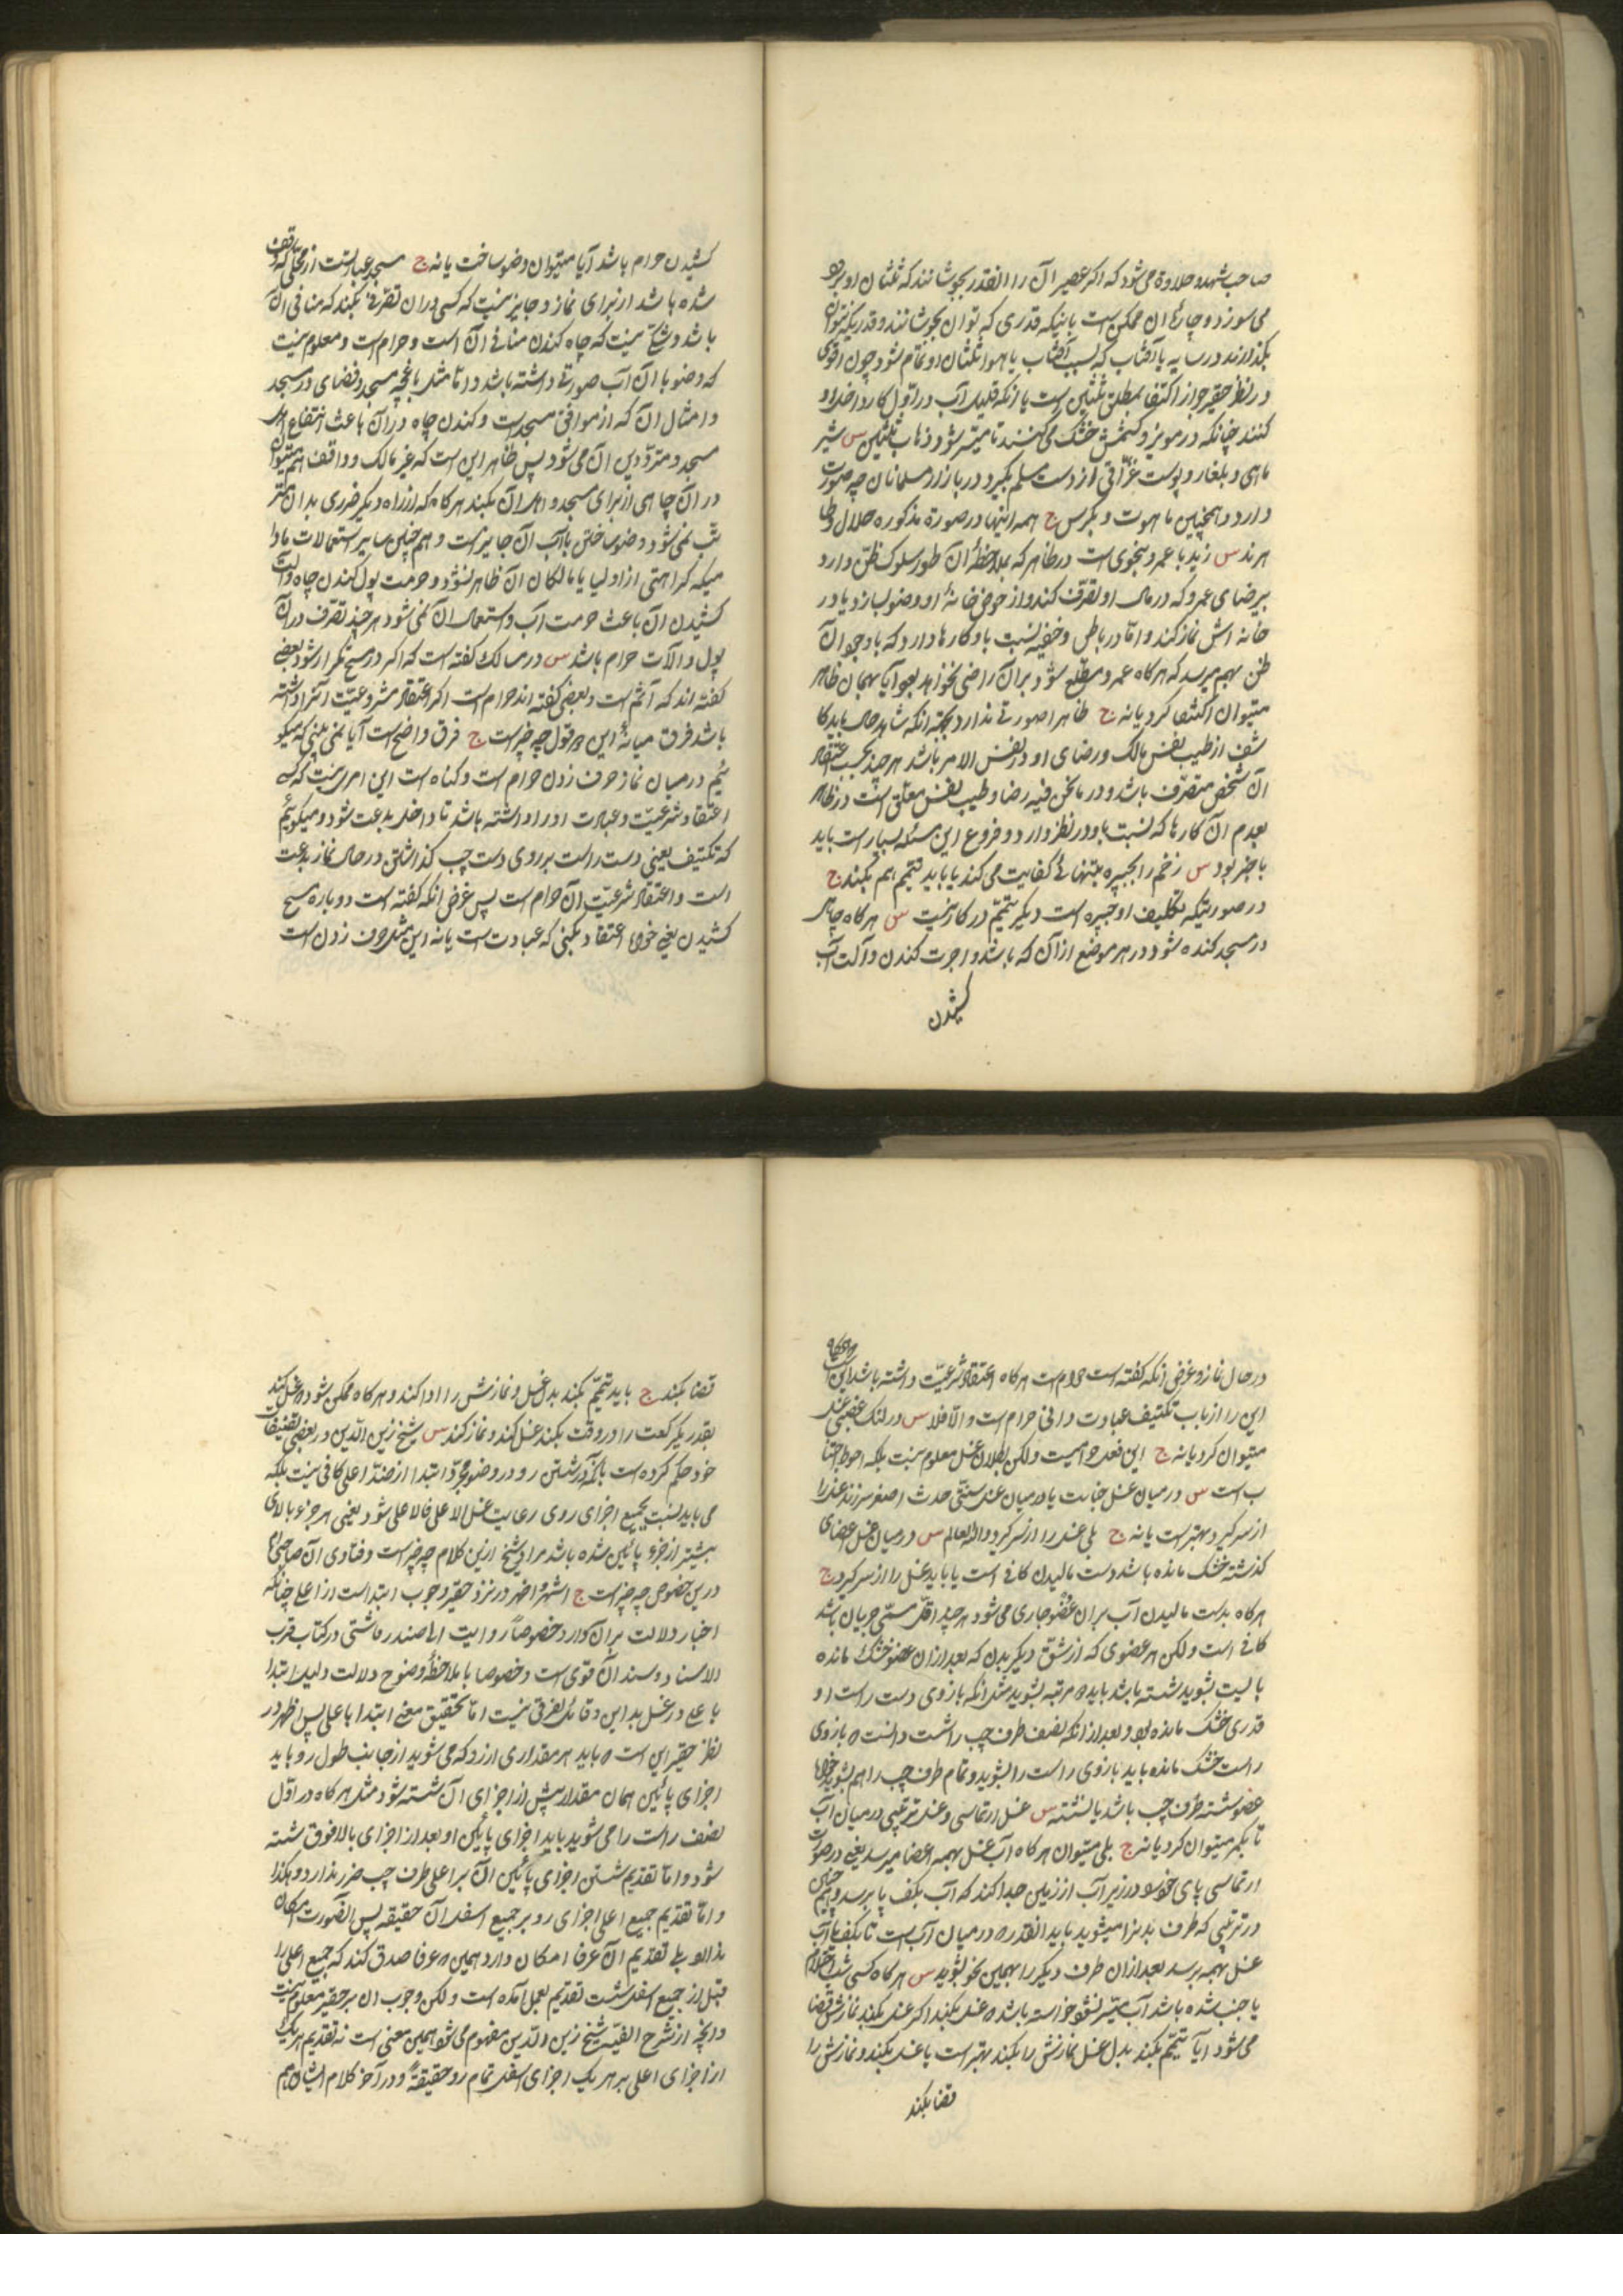 صاحب شهد و حلاوة می‌شود که اکر عصیر آن را انقدر بجوشانند که ثلثان او برود
می سوزد و چارۀ ان ممکن است باینکه قدری که توان بجوشانند و قدریکه نتوان
بکذارند در سایه یا آفتاب که بسبب آفتاب یا هوا ثلثان او تمام شود و چون اقوی
در نظر حقیر جواز اکتفا بمطلق ثلثین است یا انکه قلیل آب در اول کار داخل او
کنند چنانکه در مویز و کشمش خشک می کنند تا میسر شود ذهاب ثلثین س شیر
ماهی و بلغار و پوست غراتی از دست مسلم بکیرد در بازار مسلمانان چه صورت
دارد و همچنین ماهوت و بکرس ج همه اینها در صورة مذکوره حلال و طا
هرند س زید با عمرو بنحوی است در ظاهر که بملاحظۀ آن طور سلوک ظن دارد
برضای عمرو که در مال او تصرف کند و از حوض خانۀ او وضو بسازد یا در
خانه اش نماز کند و اما در باطن و خفیه نسبت باو کارها دارد که با وجود آن
ظن بهم میرسد که هرکاه عمرو مطلع شود بر آن راضی نخواهد بود آیا بهمان ظاهر
میتوان اکتفا کرد یا نه ج ظاهرا صورتی ندارد بجهة انکه شاهد حال باید کا
شف از طیب نفس مالک و رضای او در نفس الامر باشد هرچند بحسب اعتقاد
آن شخص متصرف باشد و در ما نحن فیه رضا و طیب نفس معلق است در ظاهر
بعدم آن کارها که نسبت باو در نظر دارد و فروع این مسئله بسیار است باید
با خبر بود س زخم را جبیره بتنهائی کفایت می کند یا باید تیمم هم بکند ج
در صورتیکه تکلیف او جبیره است دیکر تیمم در کار نیست س هرکاه چاه
در مسجد کنده شود در هر موضع از آن که باشد و اجرت کندن و آلت آب
کشیدن
کشیدن حرام باشد آیا میتوان وضو ساخت یا نه ج مسجد عبارتست از محلی که وقف
شده باشد از برای نماز و جایز نیست که کسی در ان تصرفی بکند که منافی آن
باشد و شکی نیست که چاه کندن منافی آن است و حرام است و معلوم نیست
که وضو با آن آب صورتی داشته باشد و اما مثل باغچه مسجد و فضای در مسجد
و امثال آن که از مرافق مسجد است و کندن چاه در آن باعث انتفاع اهل
مسجد و مترددین آن می شود پس ظاهر این است که غیر مالک و واقف هم میتوان
در آن چاهی از برای مسجد و اهل آن بکند هرکاه که از راه دیکر ضرری بدان متر
تب نمی شود و وضو ساختن با آب آن جایز است و هم چنین سایر استعمالات مادا
میکه کراهتی از اولیا یا مالکان آن ظاهر نشود و حرمت پول کندن چاه و آلت
کشیدن آن باعث حرمت آب و استعمال آن نمی شود هرچند تصرف در آن
پول و الآت حرام باشد س در مسالک کفته است که اکر در مسح تکرار شود بعضی
کفته اند که آثم است و بعضی کفته اند حرام است اکر اعتقاد مشروعیت آنرا داشته
باشد فرق میانۀ این دو قول چه چیز است ج فرق واضح است آیا نمی بینی که میکو
ئیم در میان نماز حرف زدن حرام است و کناه است این امری نیست که کسی
اعتقاد شرعیت و عبادت او را داشته باشد تا داخل بدعت شود و میکوئیم
که تکتیف یعنی دست راست بر روی دست چپ کذاشتن در حال نماز بدعت
است و اعتقاد شرعیت آن حرام است پس غرض انکه کفته است دوباره مسح
کشیدن یعنی خواه اعتقاد بکنی که عبادت است یا نه این مثل حرف زدن است
در حال نماز و غرض انکه کفته است حرام است هرکاه اعتقاد شرعیت داشته باشد این است
این را از باب تکتیف عبادت دانی حرام است و الا فلا س در لنک غصبی غسل
میتوان کرد یا نه ج این فعل حرامیست ولکن بطلان غسل معلوم نیست بلکه احوط اجتنا
ب است س در میان غسل جنابت یا در میان غسل سنتی حدث اصغر سر زند غسل را
از سر کیرد بهتر است یا نه ج بلی غسل را از سر کیرد والله العالم س در میان غسل اعضای
کذشته خشک مانده باشد دست مالیدن کافی است یا باید غسل را از سر کیرد ج
هرکاه بدست مالیدن آب بر ان عضو جاری می شود هرچند اقل مسمی جریان باشد
کافی است ولکن هر عضوی که از شق دیکر بدن که بعد از ان عضو خشک مانده
بایست بشوید شسته باشد باید دو مرتبه بشوید مثل انکه بازوی دست راست او
قدری خشک مانده بود و بعد از انکه نصف طرف چپ را شست دانست که بازوی
راست خشک مانده باید بازوی راست را بشوید و تمام طرف چپ را هم بشوید خواه
عضو شسته طرف چپ باشد یا نشسته س غسل ارتماسی و غسل ترتیبی در میان آب
تا بکمر میتوان کرد یا نه ج بلی میتوان هرکاه آب غسل بهمه اعضا میرسد یعنی در صورت
ارتماسی پای خود را در زیر آب از زمین جدا کند که آب بکف پا برسد و هم چنین
در ترتیبی که طرف بدنرا میشوید باید انقدر که در میان آب است تا بکف پا آب
غسل بهمه برسد بعد از ان طرف دیکر را بهمین نحو بشوید س هرکاه کسی شب احتلام
یا جنب شده باشد آب میسر نشود خواسته باشد که غسل بکند اکر غسل بکند نمازش قضا
می شود آیا تیمم بکند بدل غسل نمازش را بکند بهتر است یا غسل بکند و نمازش را
قضا بکند
قضا بکند ج باید تیمم بکند بدل غسل و نمازش را ادا کند و هرکاه ممکن شود که غسل کند
بقدر یکرکعت را در وقت بکند غسل کند و نماز کند س شیخ زین الدین در بعضی تصنیفات
خود حکم کرده است بانکه در شستن رو در وضو مجرد ابتدا از ضد اعلی کافی نیست بلکه
می باید نسبت بجمیع اجزای روی رعایت غسل الاعلی فالاعلی شود یعنی هر جزء بالای
بیشتر از جزء پائین شده باشد مراد شیخ ازین کلام چه چیز است و فتاوی آن صاحبی ام
درین خصوص چه چیز است ج اشهر و اظهر در نزد حقیر وجوب ابتداست از اعلی چنانکه
اخبار دلالت بر آن دارد خصوصاً روایت که در کتاب قرب
الاسناد و سند آن قوی است و خصوصا با ملاحظۀ وضوح دلالت دلیل ابتدا
باعلی در غسل بد این دقائق بفرقی نیست اما تحقیق معنی ابتدا باعلی پس اظهر در
نظر حقیر این است که باید هر مقداری از رو که می شوید از جانب طول رو باید
اجزای پائین همان مقدار پیش از اجزای آن شسته شود مثل هرکاه در اول
نصف راست را می شوید باید اجزای پایین او بعد از اجزای بالا فوق شسته
شود و اما تقدیم شستن اجزای پائین آن بر اعلی طرف چپ ضرر ندارد و هکذا
و اما تقدیم جمیع اعلی اجزای رو بر جمیع اسفل آن حقیقه پس انصورت امکان
ندارد بلی تقدیم آن عرفا امکان دارد همین که عرفا صدق کند که جمیع اعلی را
قبل از جمیع اسفل شست تقدیم بعمل آمده است ولکن وجوب ان بر حقیر معلوم نیست
و انچه از شرح الفیه شیخ زین الدین مفهوم می شود همین معنی است نه تقدیم هر یک
از اجزای اعلی بر هر یک اجزای اسفل تمام رو حقیقةً و در آخر کلام ایشان هم